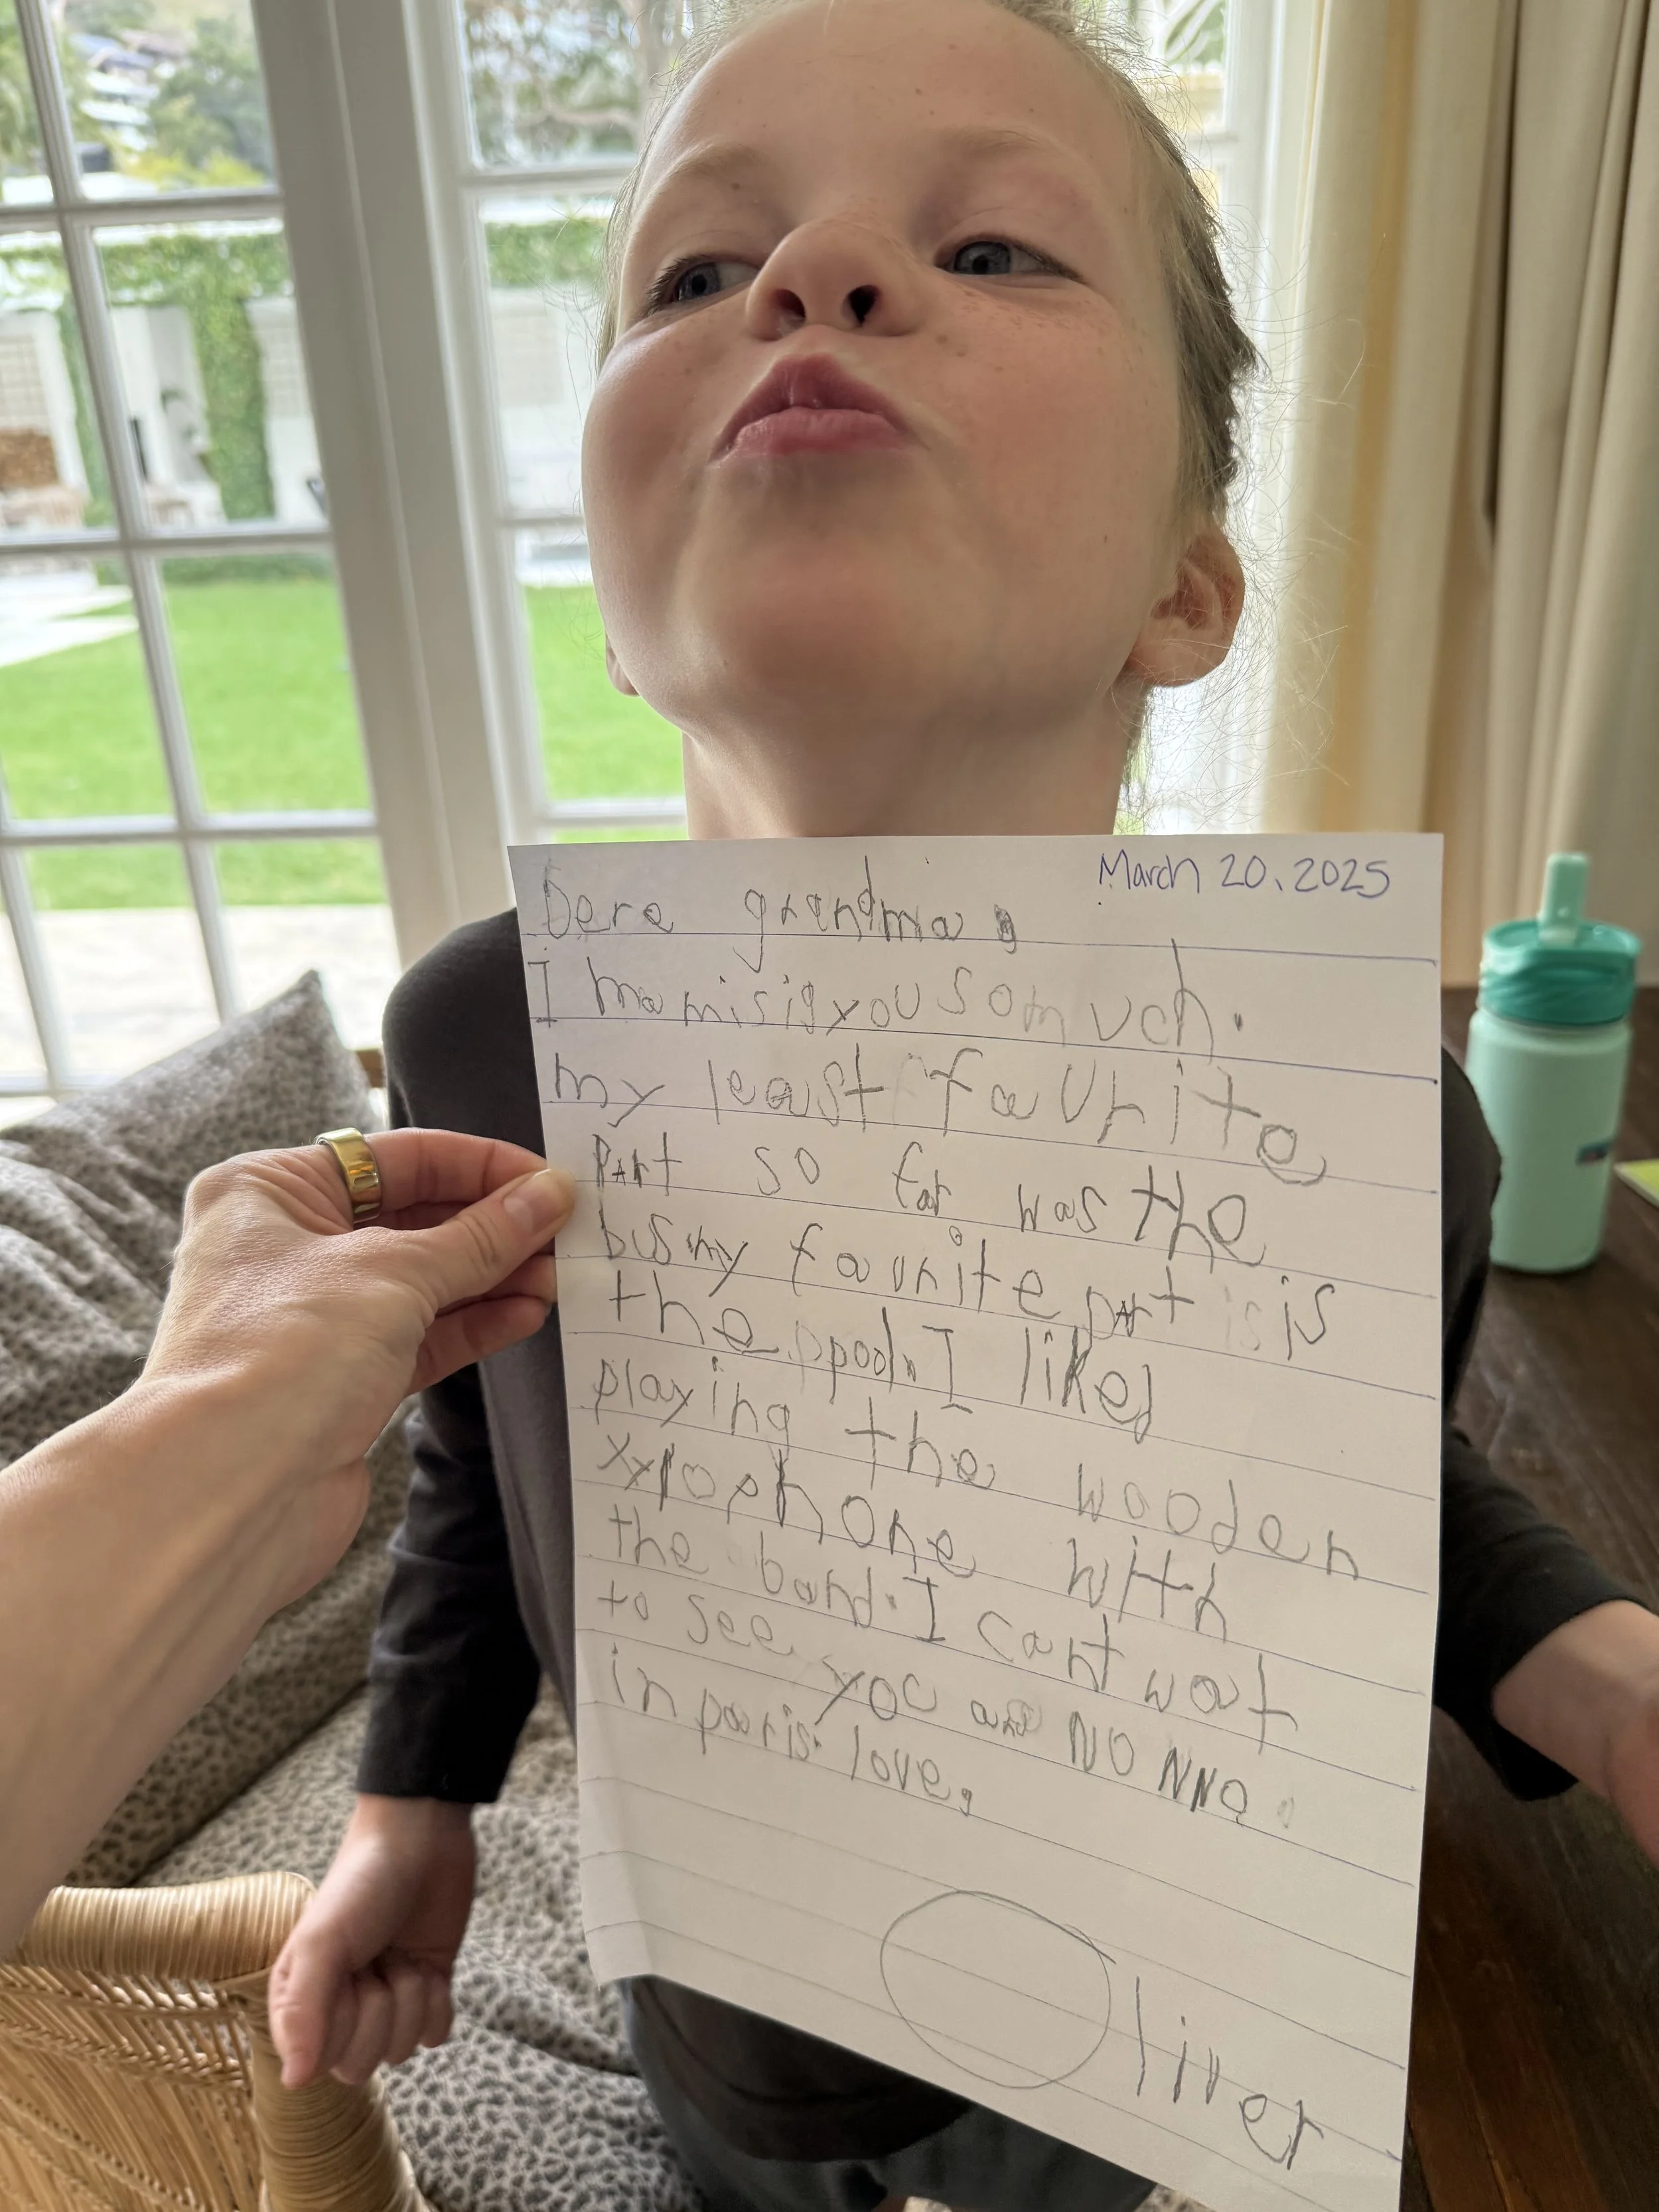 March 20, 2025
Dera grandma,
I ma misig you so much.
my least favrite
part so far was the
bus my favrite part is is
the ppool. I liked
playing the wooden
xylophone with
the band. I cant wat
to see you and NO NNO.
in paris. love,
Oliver